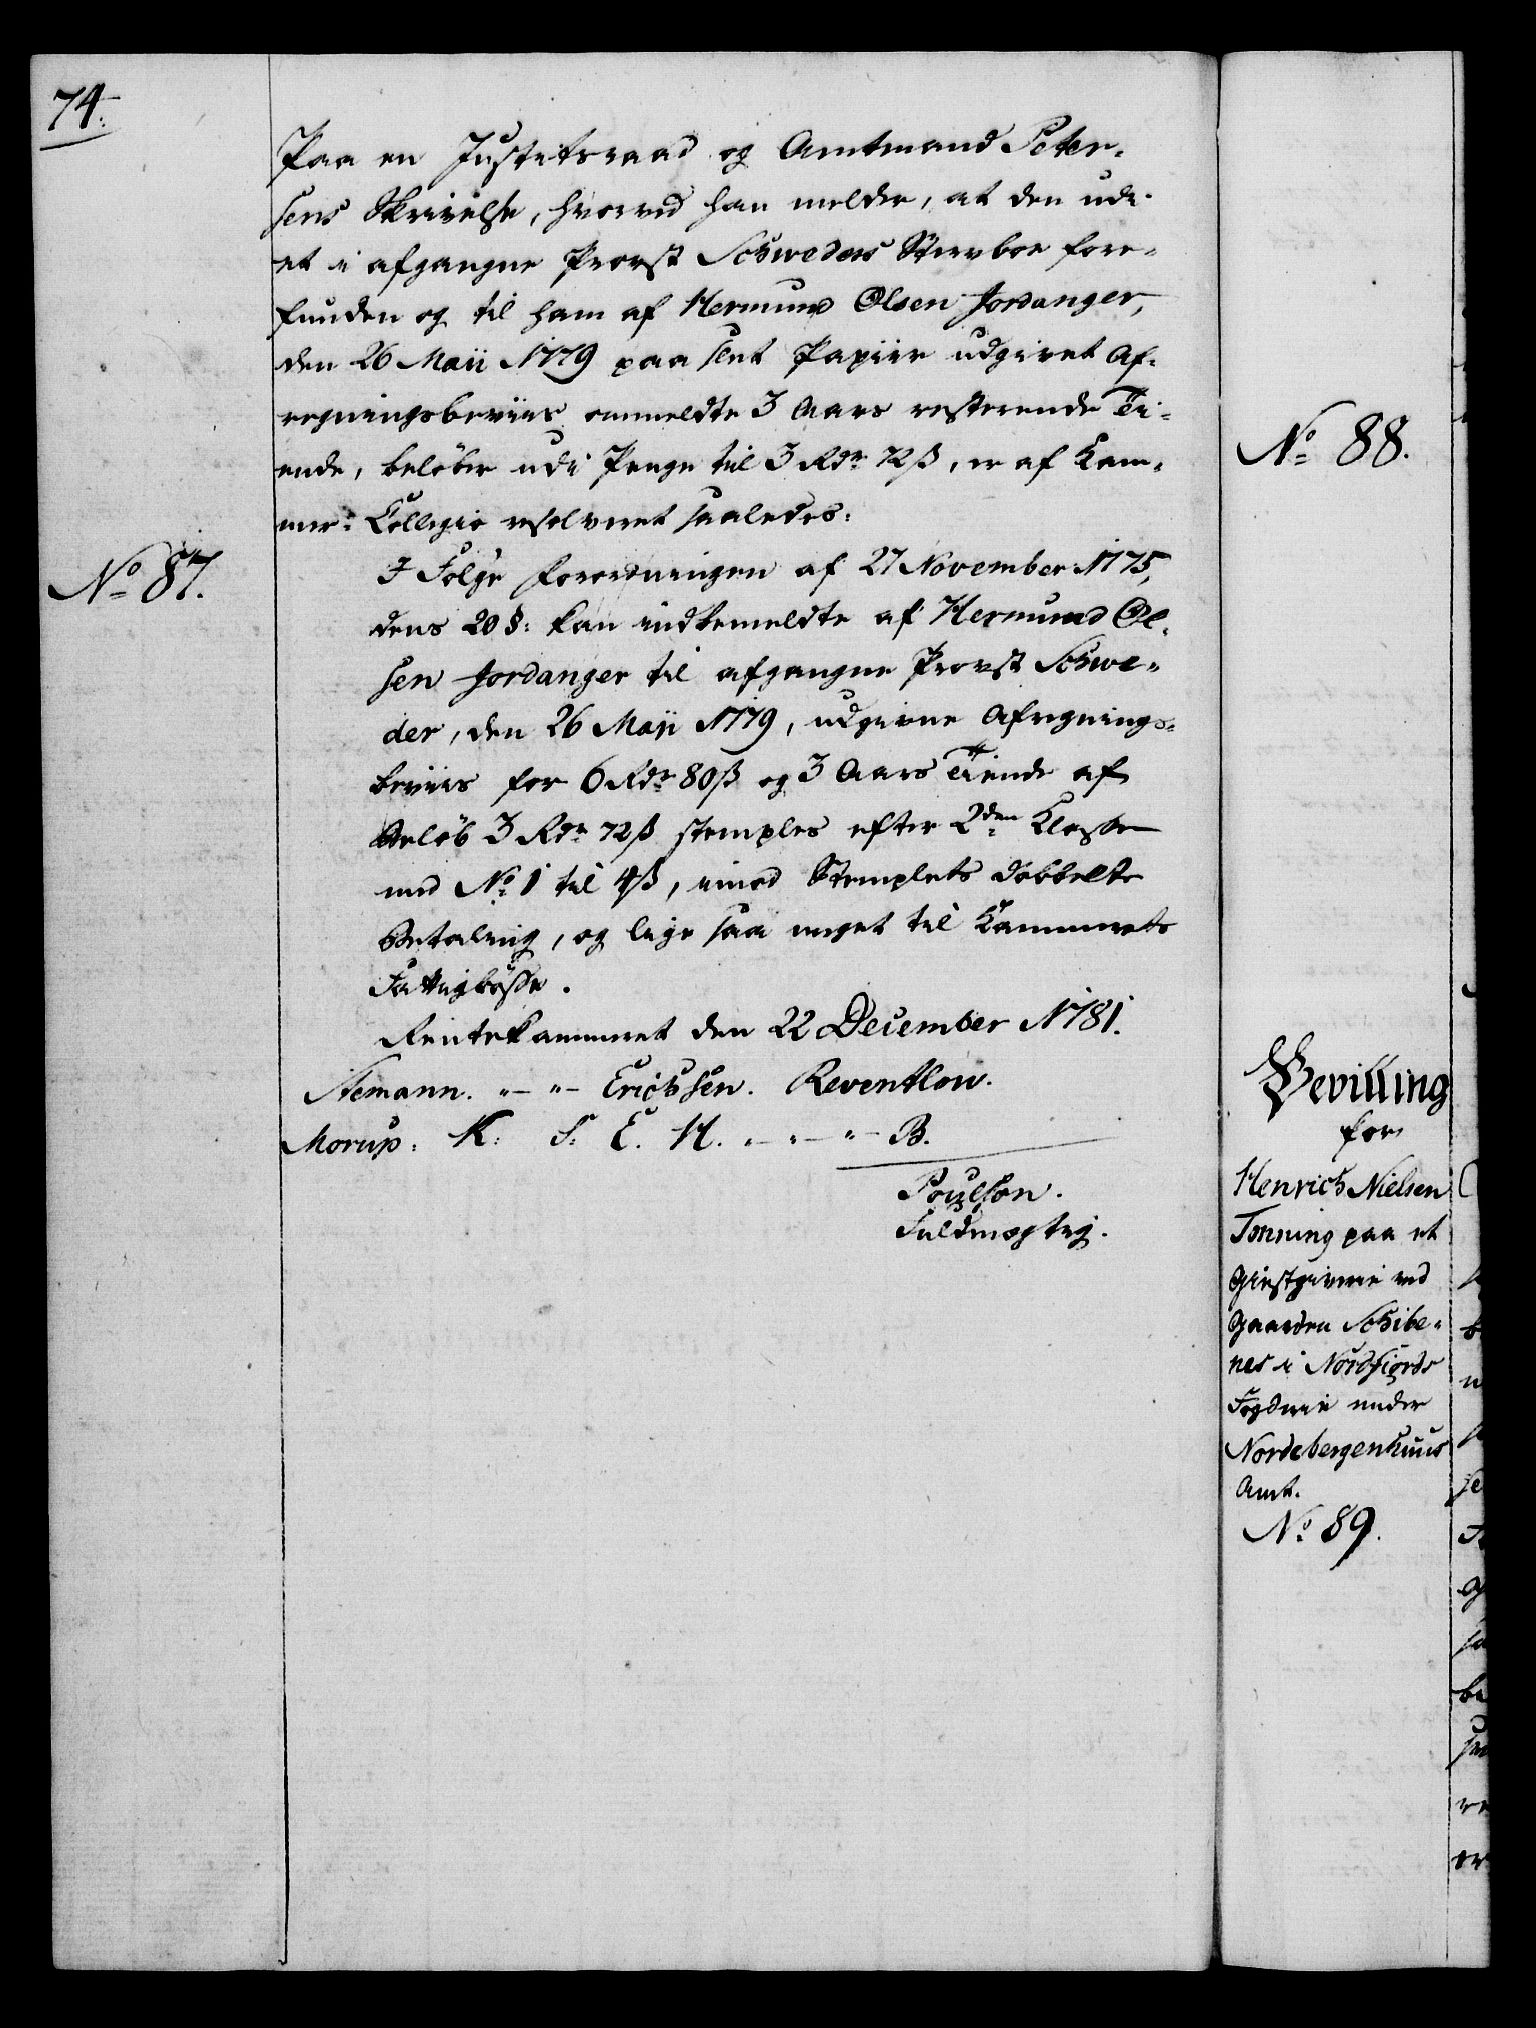 74.
Paa en Justitsraad og Amtmand Peter-
sens Skrivelse, hvorved han melder, at den udi
et i afgangne Provst Schweders Stervboe fore-
funden og til ham af Hermund Olsen Jordanger,
den 26 Maii 1779 paa slet Papiir udgivet Af-
regningsbeviis ommeldte 3 Aars resterende Ti-
ende, beløber udi Penge til 3 Rdr 72 ß, er af Kam-
mer-Collegio resolveret saaledes:
No 87.
I Følge Forordningen af 27 November 1775,
dens 20 §: kan indbemeldte af Hermund Ol-
sen Jordanger til afgangne Provst Schwe-
der, den 26 Maji 1779, udgivne Afregnings-
beviis for 6 Rdr 80 ß og 3 Aars Tiende af
Beløb 3 Rdr 72 ß stemples efter 2den Classe
med No 1 til 4 ß, imod Stemplets dobbelte
Betaling, og lige saa meget til Kammerets
Fattigbøsse.
Rentekammeret den 22 December 1781.
Stemann. "—"— Erichsen. Reventlow.
Morup: K: S: E. H. "—"—"— B.
Poulson.
Fuldmægtig.
No 88.
Bevilling
for
Henrich Nielsen
Tonning paa et
Giestgiverie ved
Gaarden Schibe-
nes i Nordfiords
Fogderie under
Nordrebergenhuus
Amt.
No 89.